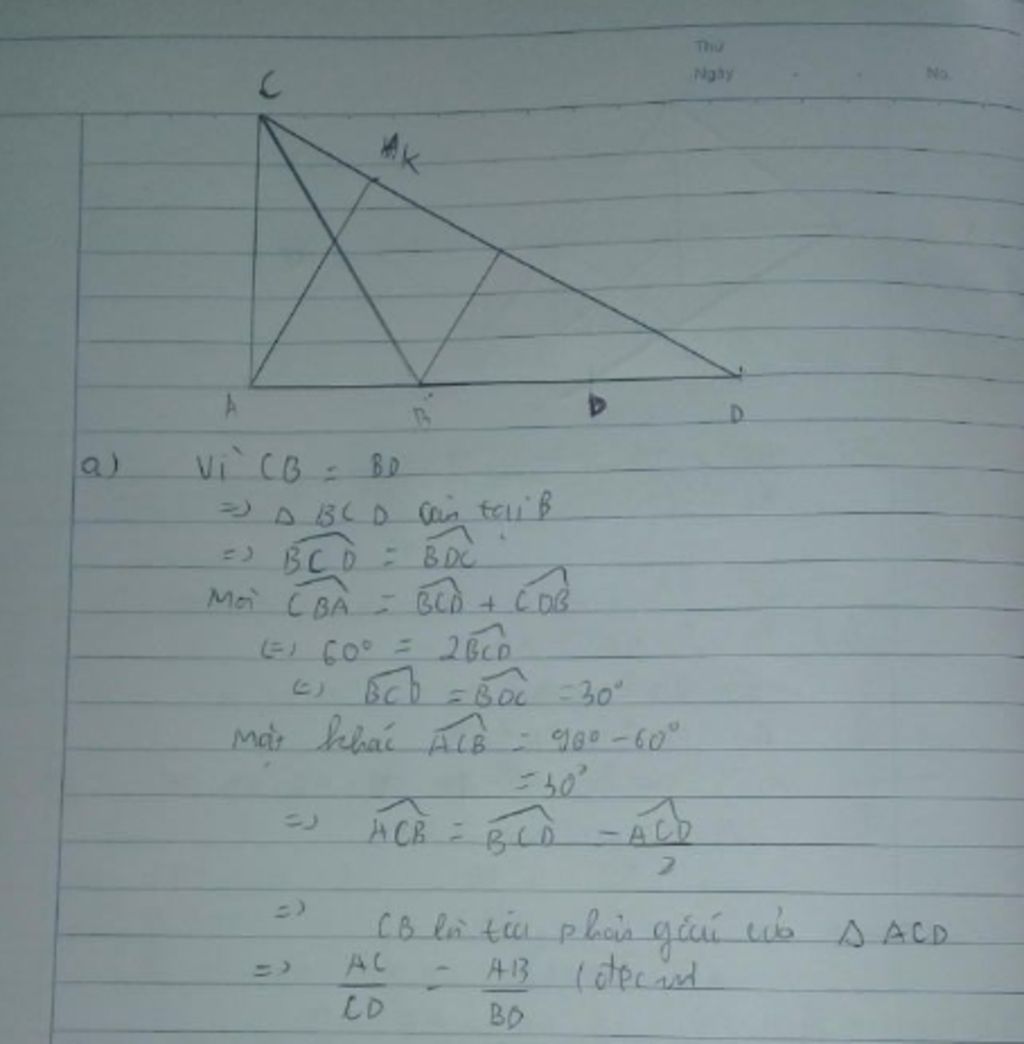 Thứ
Ngày . . No.
C
K
A B D D
a) Vì CB = BD
=> Δ BCD cân tại B
=> \widehat{BCD} = \widehat{BDC}
Mà \widehat{CBA} = \widehat{BCD} + \widehat{CDB}
(=) 60° = 2\widehat{BCD}
(=) \widehat{BCD} = \widehat{BDC} = 30°
Mặt khác \widehat{ACB} = 90° - 60°
= 30°
=> \widehat{ACB} = \widehat{BCD} = \frac{\widehat{ACD}}{2}
=> CB là tia phân giác của Δ ACD
=> \frac{AC}{CD} = \frac{AB}{BD} (đpcm)